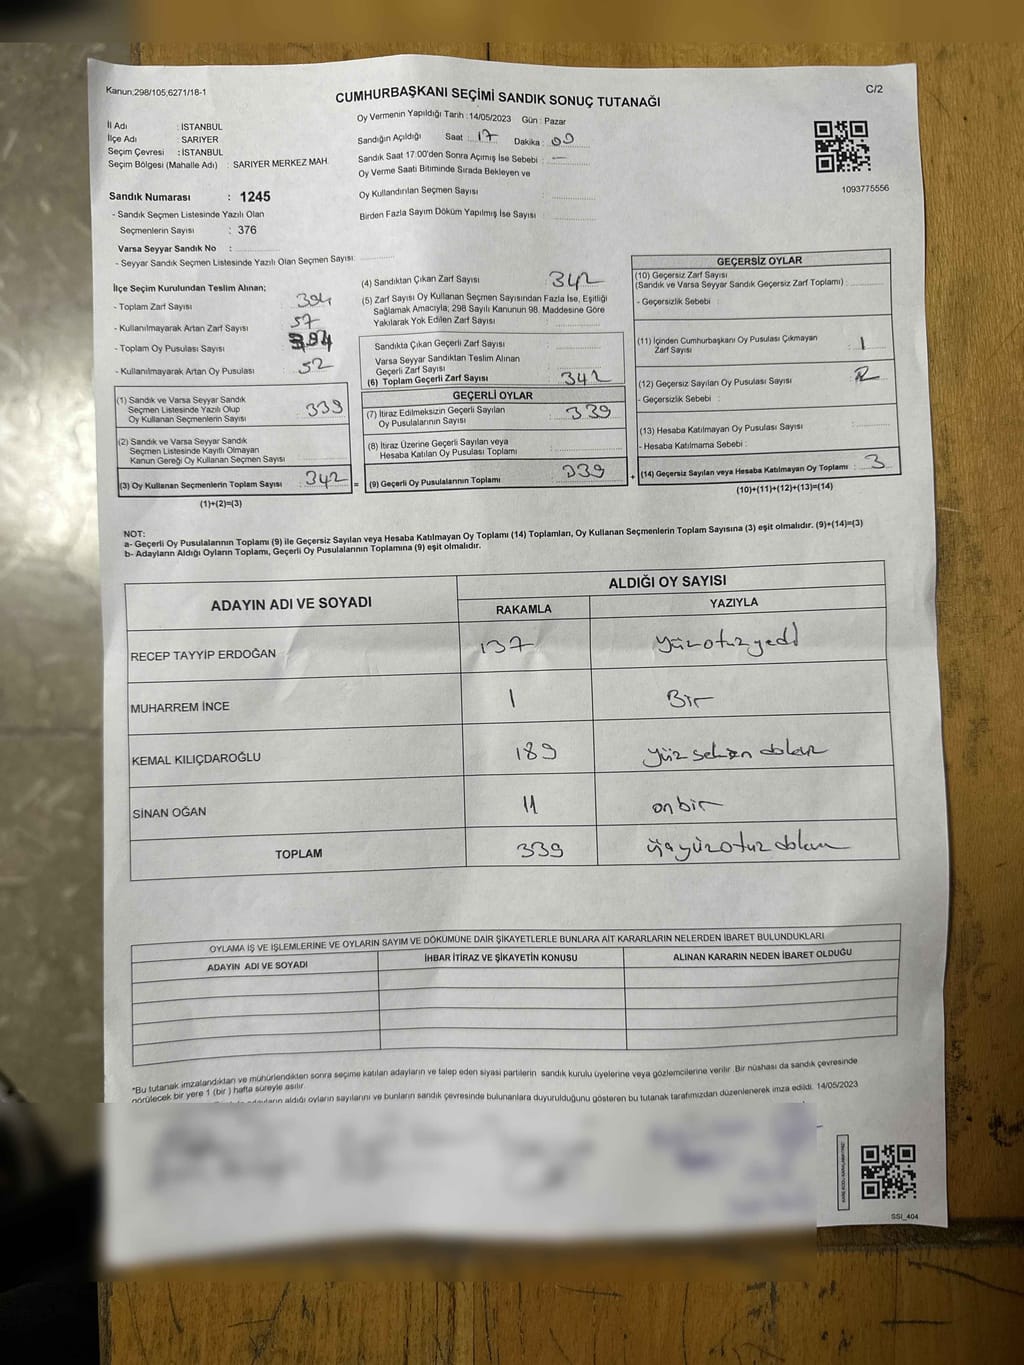 Kanun:298/105,6271/18-1
C/2
CUMHURBAŞKANI SEÇİMİ SANDIK SONUÇ TUTANAĞI
İl Adı : İSTANBUL
İlçe Adı : SARIYER
Seçim Çevresi : İSTANBUL
Seçim Bölgesi (Mahalle Adı) : SARIYER MERKEZ MAH.
Oy Vermenin Yapıldığı Tarih : 14/05/2023 Gün : Pazar
Sandığın Açıldığı Saat : 17 Dakika : 09
Sandık Saat 17:00'den Sonra Açımış İse Sebebi : —
Oy Verme Saati Bitiminde Sırada Bekleyen ve
Oy Kullandırılan Seçmen Sayısı :
Birden Fazla Sayım Döküm Yapılmış İse Sayısı :
1093775556
Sandık Numarası : 1245
- Sandık Seçmen Listesinde Yazılı Olan
Seçmenlerin Sayısı : 376
Varsa Seyyar Sandık No :
- Seyyar Sandık Seçmen Listesinde Yazılı Olan Seçmen Sayısı:
İlçe Seçim Kurulundan Teslim Alınan;
- Toplam Zarf Sayısı : 394
- Kullanılmayarak Artan Zarf Sayısı : 57
- Toplam Oy Pusulası Sayısı : 394
- Kullanılmayarak Artan Oy Pusulası : 52
(1) Sandık ve Varsa Seyyar Sandık
Seçmen Listesinde Yazılı Olup
Oy Kullanan Seçmenlerin Sayısı : 339
(2) Sandık ve Varsa Seyyar Sandık
Seçmen Listesinde Kayıtlı Olmayan
Kanun Gereği Oy Kullanan Seçmen Sayısı :
(3) Oy Kullanan Seçmenlerin Toplam Sayısı : 342 =
(1)+(2)=(3)
(4) Sandıktan Çıkan Zarf Sayısı : 342
(5) Zarf Sayısı Oy Kullanan Seçmen Sayısından Fazla İse, Eşitliği
Sağlamak Amacıyla, 298 Sayılı Kanunun 98. Maddesine Göre
Yakılarak Yok Edilen Zarf Sayısı :
Sandıkta Çıkan Geçerli Zarf Sayısı :
Varsa Seyyar Sandıktan Teslim Alınan
Geçerli Zarf Sayısı :
(6) Toplam Geçerli Zarf Sayısı : 342
GEÇERLİ OYLAR
(7) İtiraz Edilmeksizin Geçerli Sayılan
Oy Pusulalarının Sayısı : 339
(8) İtiraz Üzerine Geçerli Sayılan veya
Hesaba Katılan Oy Pusulası Toplamı :
(9) Geçerli Oy Pusulalarının Toplamı : 339 +
GEÇERSİZ OYLAR
(10) Geçersiz Zarf Sayısı
(Sandık ve Varsa Seyyar Sandık Geçersiz Zarf Toplamı) :
- Geçersizlik Sebebi :
(11) İçinden Cumhurbaşkanı Oy Pusulası Çıkmayan
Zarf Sayısı : 1
(12) Geçersiz Sayılan Oy Pusulası Sayısı : 2
- Geçersizlik Sebebi :
(13) Hesaba Katılmayan Oy Pusulası Sayısı :
- Hesaba Katılmama Sebebi :
(14) Geçersiz Sayılan veya Hesaba Katılmayan Oy Toplamı : 3
(10)+(11)+(12)+(13)=(14)
NOT:
a- Geçerli Oy Pusulalarının Toplamı (9) ile Geçersiz Sayılan veya Hesaba Katılmayan Oy Toplamı (14) Toplamları, Oy Kullanan Seçmenlerin Toplam Sayısına (3) eşit olmalıdır. (9)+(14)=(3)
b- Adayların Aldığı Oyların Toplamı, Geçerli Oy Pusulalarının Toplamına (9) eşit olmalıdır.
ADAYIN ADI VE SOYADI
ALDIĞI OY SAYISI
RAKAMLA YAZIYLA
RECEP TAYYİP ERDOĞAN 137 yüzotuzyedi
MUHARREM İNCE 1 Bir
KEMAL KILIÇDAROĞLU 189 yüz seksen dokuz
SİNAN OĞAN 11 onbir
TOPLAM 339 üçyüzotuz dokuz
OYLAMA İŞ VE İŞLEMLERİNE VE OYLARIN SAYIM VE DÖKÜMÜNE DAİR ŞİKAYETLERLE BUNLARA AİT KARARLARIN NELERDEN İBARET BULUNDUKLARI
ADAYIN ADI VE SOYADI İHBAR İTİRAZ VE ŞİKAYETİN KONUSU ALINAN KARARIN NEDEN İBARET OLDUĞU
*Bu tutanak imzalandıktan ve mühürlendikten sonra seçime katılan adayların ve talep eden siyasi partilerin sandık kurulu üyelerine veya gözlemcilerine verilir. Bir nüshası da sandık çevresinde
görülecek bir yere 1 (bir ) hafta süreyle asılır.
adayların aldığı oyların sayılarını ve bunların sandık çevresinde bulunanlara duyurulduğunu gösteren bu tutanak tarafımızdan düzenlenerek imza edildi. 14/05/2023
SSI_404